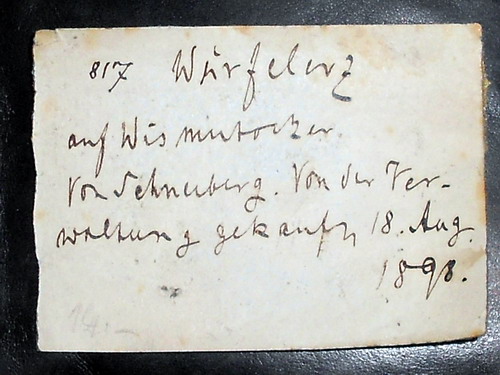 817 Würfelerz
auf Wismutocker.
Von Schneeberg. Von der Ver-
waltung gekauft, 18. Aug.
1898.